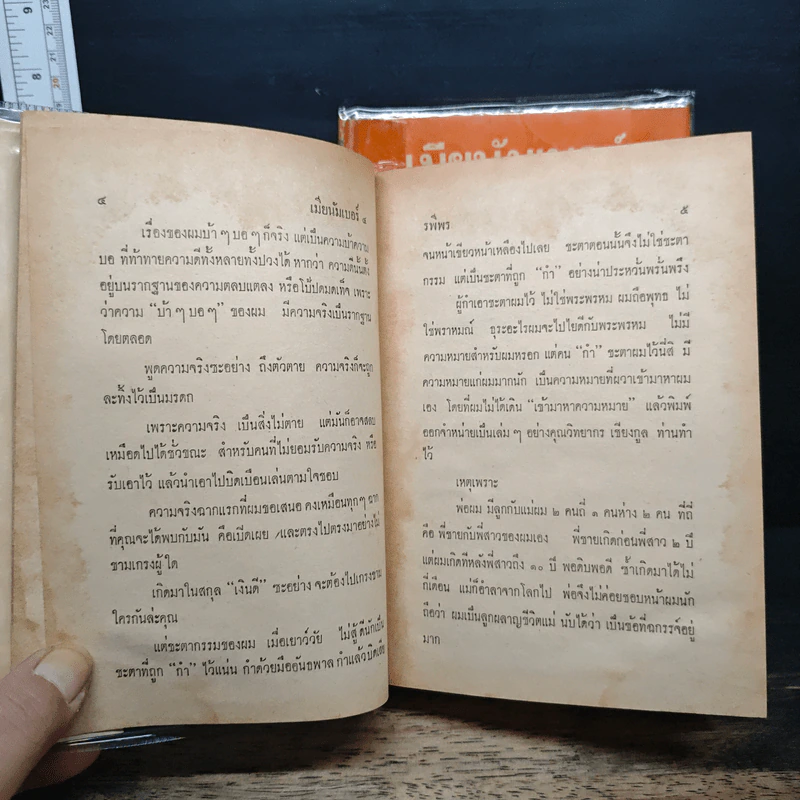 ๔
เมียนัมเบอร์ ๔
เรื่องของผมบ้า ๆ บอ ๆ ก็จริง แต่เป็นความบ้าความ
บอ ที่ท้าทายความดีทั้งหลายทั้งปวงได้ หากว่า ความดีนั้นตั้ง
อยู่บนรากฐานของความตลบแตลง หรือโป้ปดมดเท็จ เพราะ
ว่าความ “บ้า ๆ บอ ๆ” ของผม มีความจริงเป็นรากฐาน
โดยตลอด
พูดความจริงซะอย่าง ถึงตัวตาย ความจริงก็จะถูก
ละทิ้งไว้เป็นมรดก
เพราะความจริง เป็นสิ่งไม่ตาย แต่มันก็อาจสลบ
เหมือดไปได้ชั่วขณะ สำหรับคนที่ไม่ยอมรับความจริง หรือ
รับเอาไว้ แล้วนำเอาไปบิดเบือนเล่นตามใจชอบ
ความจริงฉากแรกที่ผมขอเสนอ คงเหมือนทุก ๆ ฉาก
ที่คุณจะได้พบกับมัน คือเปิดเผย และตรงไปตรงมาอย่างไม่
ขามเกรงผู้ใด
เกิดมาในสกุล “เงินดี” ซะอย่าง จะต้องไปเกรงขาม
ใครกันล่ะคุณ
แต่ชะตากรรมของผม เมื่อเยาว์วัย ไม่สู้ดีนักเป็น
ชะตาที่ถูก “กำ” ไว้แน่น กำด้วยมืออันธพาล กำแล้วบิดเสีย
รพีพร
๕
จนหน้าเขียวหน้าเหลืองไปเลย ชะตาตอนนั้นจึงไม่ใช่ชะตา
กรรม แต่เป็นชะตาที่ถูก “กำ” อย่างน่าประหวั่นพรั่นพรึง
ผู้กำเอาชะตาผมไว้ ไม่ใช่พระพรหม ผมถือพุทธ ไม่
ใช่พราหมณ์ ธุระอะไรผมจะไปไยดีกับพระพรหม ไม่มี
ความหมายสำหรับผมหรอก แต่คน “กำ” ชะตาผมไว้นี่สิ มี
ความหมายแก่ผมมากนัก เป็นความหมายที่ผวาเข้ามาหาผม
เอง โดยที่ผมไม่ได้เดิน “เข้ามาหาความหมาย” แล้วพิมพ์
ออกจำหน่ายเป็นเล่ม ๆ อย่างคุณวิทยากร เชียงกูล ท่านทำ
ไว้
เหตุเพราะ
พ่อผม มีลูกกับแม่ผม ๒ คนถี่ ๑ คนห่าง ๒ คน ที่ถี่
คือ พี่ชายกับพี่สาวของผมเอง พี่ชายเกิดก่อนพี่สาว ๒ ปี
แต่ผมเกิดทีหลังพี่สาวถึง ๑๐ ปี พอดิบพอดี ซ้ำเกิดมาได้ไม่
กี่เดือน แม่ก็อำลาจากโลกไป พ่อจึงไม่ค่อยชอบหน้าผมนัก
ถือว่า ผมเป็นลูกผลาญชีวิตแม่ นับได้ว่า เป็นข้อที่ฉกรรจ์อยู่
มาก